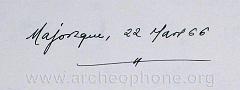 Majorque, 22 Mars 66
www.archeophone.org